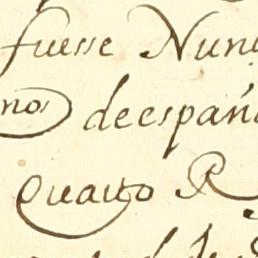 fuesse Nun
nos de españ
quarto R